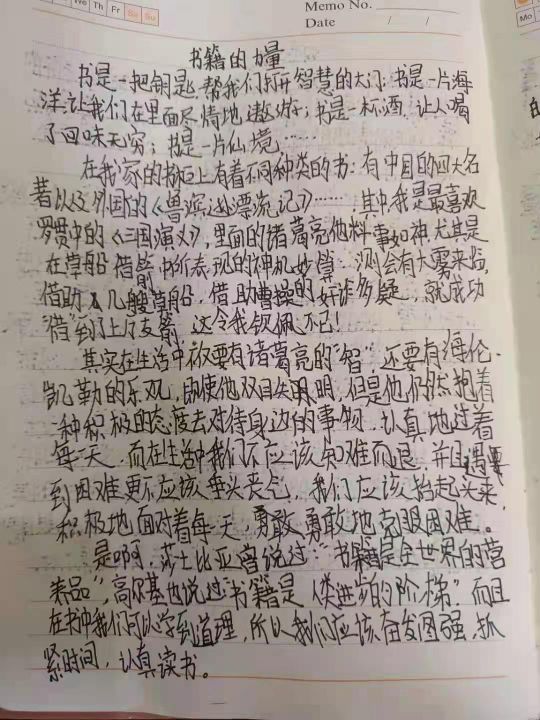 We Th Fr Sa Su
Memo No.
Mo
Date / /
书籍的力量
书是一把钥匙,帮我们打开智慧的大门;书是一片海
洋,让我们在里面尽情地遨游;书是一杯酒,让人喝
了回味无穷;书是一片仙境……
在我家的书柜上有着不同种类的书:有中国的四大名
著以及外国的《鲁滨逊漂流记》……,其中我是最喜欢
罗贯中的《三国演义》,里面的诸葛亮他料事如神,尤其是
在草船借箭中所表现的神机妙算,测会有大雾来临,
借助几艘草船,借助曹操的奸诈多疑,就成功
“借”到了上万支箭,这令我钦佩不已!
其实在生活中不仅要有诸葛亮的“智”,还要有海伦·
凯勒的乐观,即使他双目失明,但是他仍然抱着
一种积极的态度去对待身边的事物,认真地过着
每一天,而在生活中我们不应该知难而退,并且遇
到困难更不应该垂头丧气,我们应该抬起头来,
积极地面对着每一天,勇敢勇敢地克服困难。
是啊,莎士比亚曾说过:“书籍是全世界的营
养品”,高尔基也说过“书籍是人类进步的阶梯”而且
在书中我们可以学到道理,所以我们应该奋发图强,抓
紧时间,认真读书。